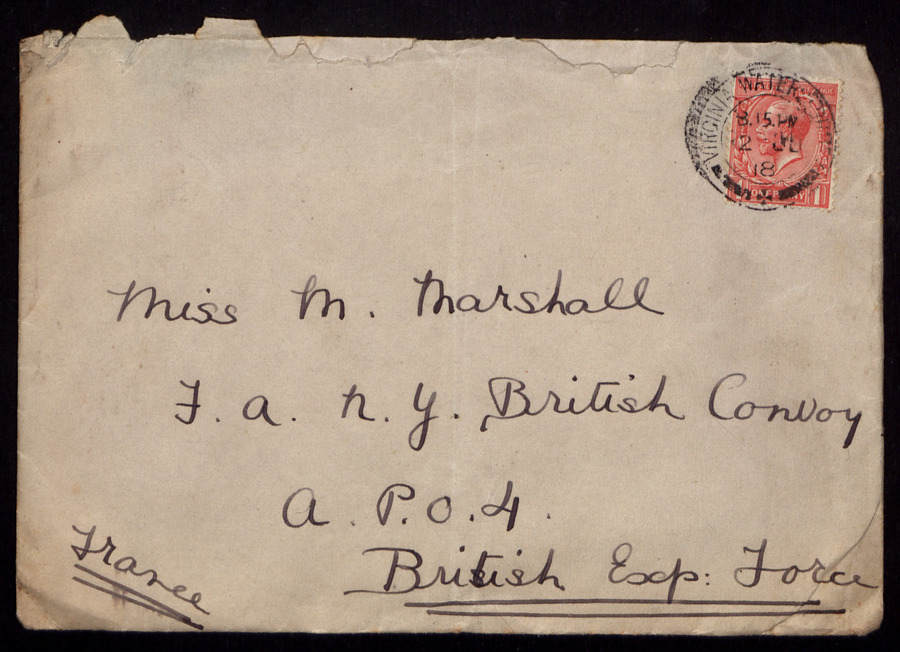 VIRGINIA WATER
8.15.PM
2 JL
18
Miss M. Marshall
F. a. n. y. British Convoy
a. P. O. 4.
British Exp: Force
France